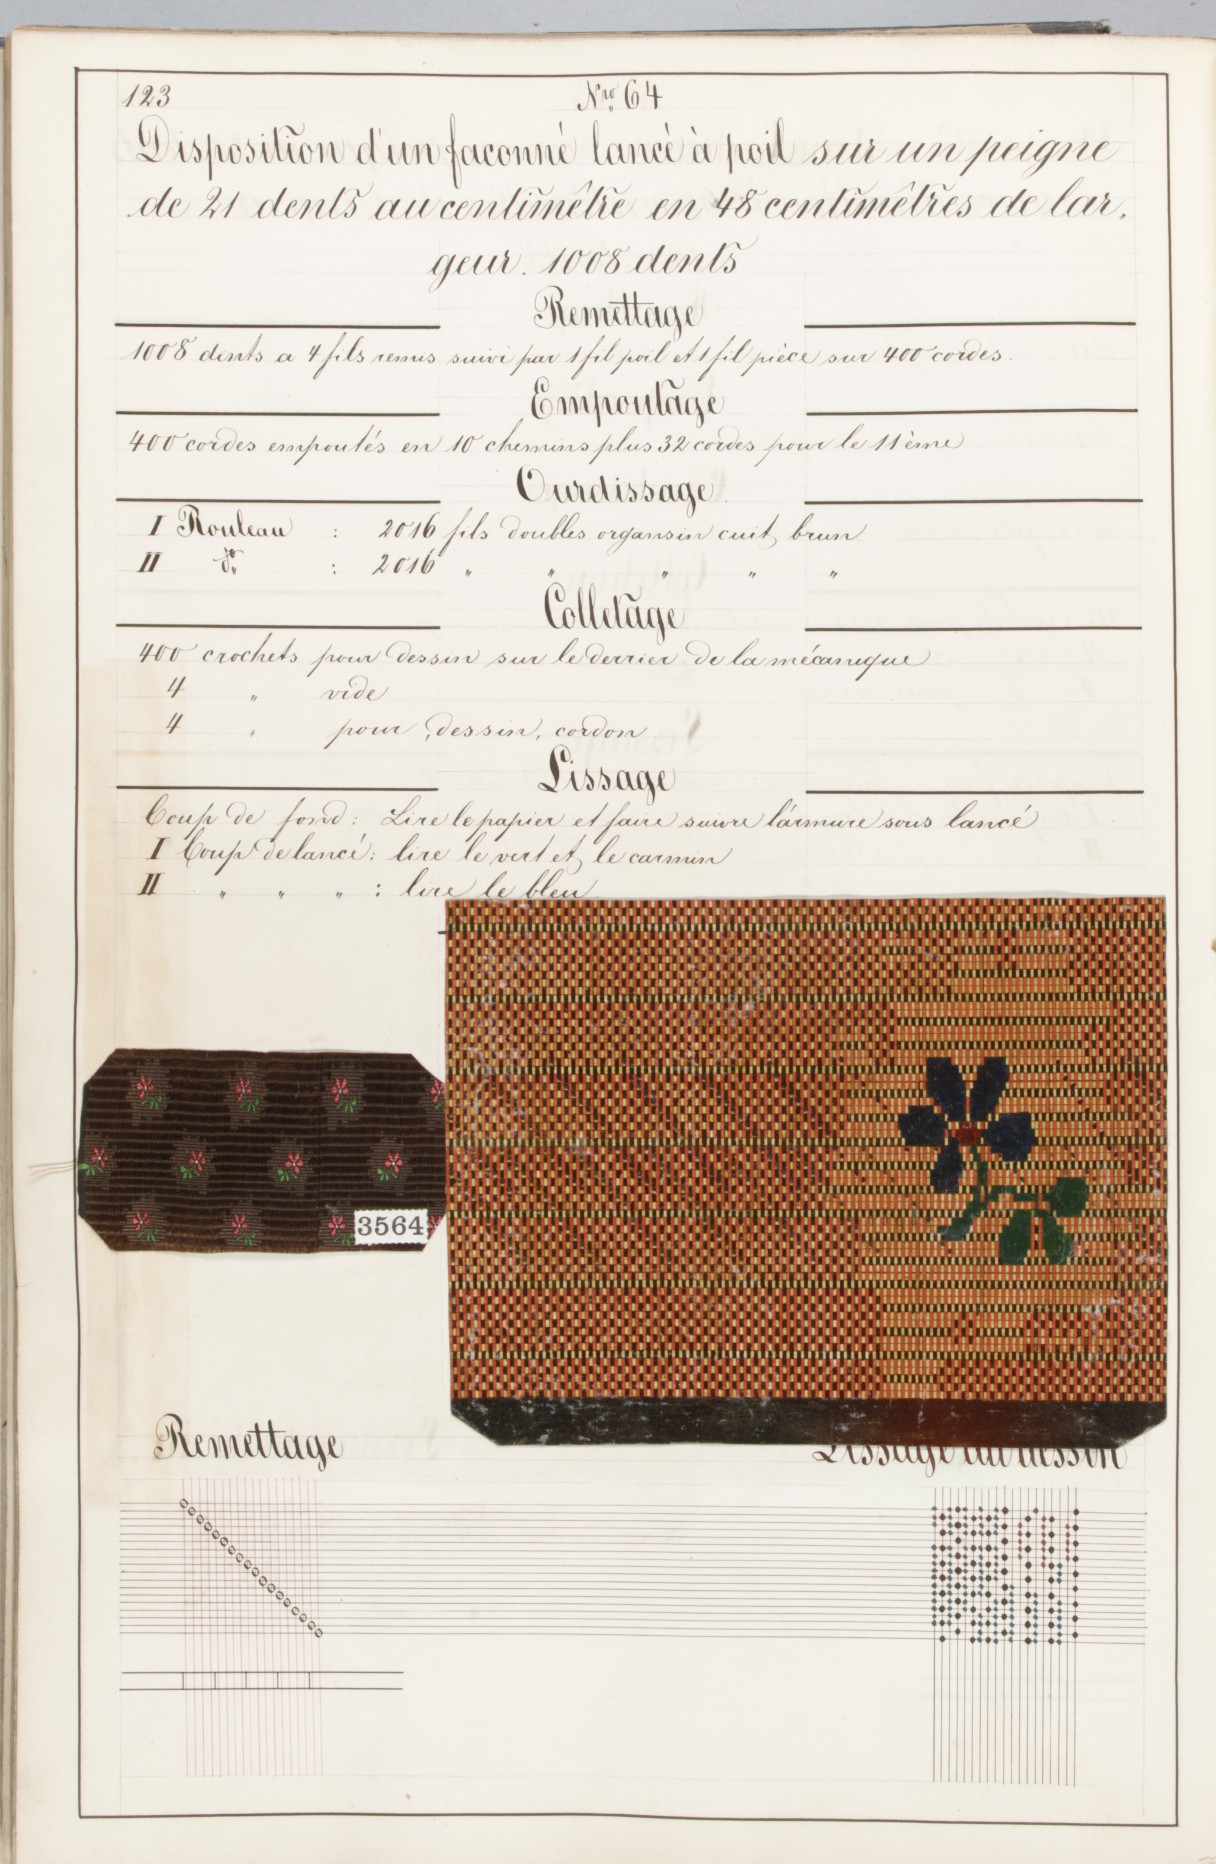 123
Nro 64
Disposition d'un façonné lancé à poil sur un peigne
de 21 dents au centimêtre en 48 centimêtres de lar,
geur. 1008 dents
Remettage
1008 dents a 4 fils remis suivi par 1 fil poil et 1 fil pièce sur 400 cordes.
Empoutage
400 cordes empoutés en 10 chemins plus 32 cordes pour le 11ème
Ourdissage
I Rouleau : 2016 fils doubles organsin cuit brun
II do : 2016 " " " " "
Colletage
400 crochets pour dessin sur le derrier de la mécanique
4 " vide
4 " pour dessin, cordon
Lissage
Coup de fond: Lire le papier et faire suivre l'armure sous lancé
I Coup de lancé: lire le vert et le carmin
II " " " : lire le bleu
3564
Remettage
Lissage du dessin